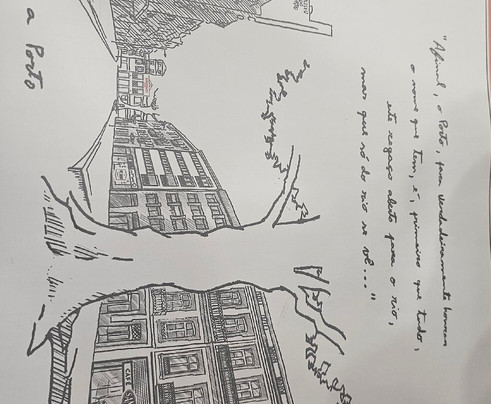 "Afinal, o Porto, para verdadeiramente honrar
o nome que tem, é, primeiro que tudo,
este regaço aberto para o rio,
mas que só do rio se vê..."
a Porto
CAFÉ